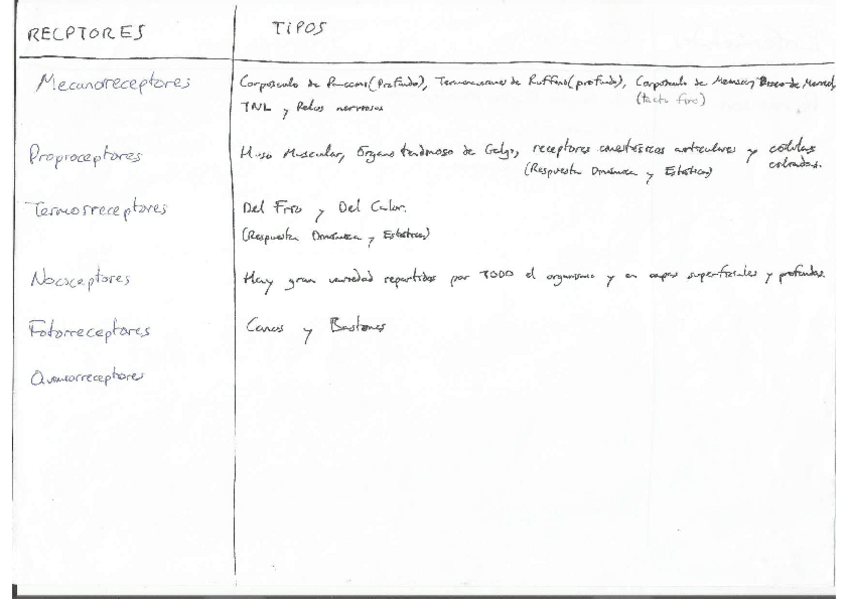 RECPTORES TIPOS
Mecanoreceptores Corpúsculo de Paccini (Profundo), Terminaciones de Ruffini (profundo), Corpúsculo de Meissner, Discos de Merckel,
(tacto fino)
TNL y Pelos nerviosos
Proproceptores Huso Muscular, Órgano tendinoso de Golgi, receptores cinestésicos articulares y células
ciliadas.
(Respuesta Dinámica y Estática)
Termosrreceptores Del Frío y Del Calor.
(Respuesta Dinámica y Estática)
Nociceptores Hay gran variedad repartidos por TODO el organismo y en capas superficiales y profundas.
Fotorreceptores Conos y Bastones
Quimiorreceptores